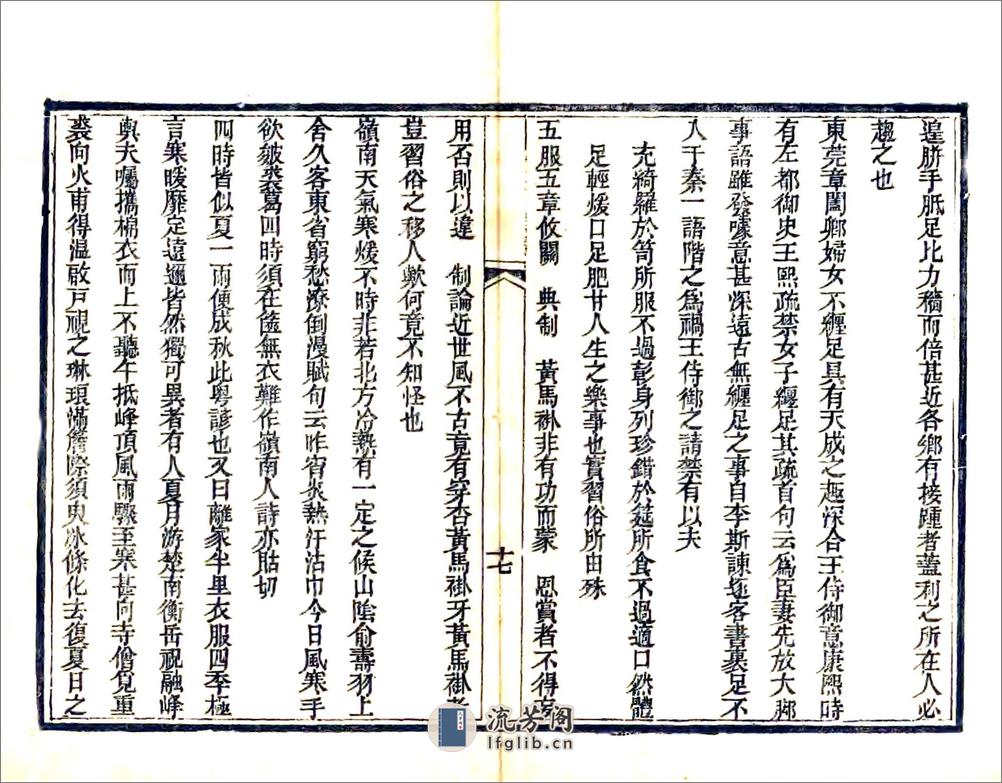 遑胼手胝足比力穡而倍甚近各鄉有接踵者蓋利之所在人必
趨之也
東莞章閣鄉婦女不纏足具有天成之趣深合王侍御意康熙時
有左都御史王熙疏禁女子纏足其疏首句云爲臣妻先放大脚
事語雖發噱意甚深遠古無纏足之事自李斯諫逐客書裹足不
入于秦一語階之爲禍王侍御之請禁有以夫
充綺羅於笥所服不過彰身列珍錯於筵所食不過適口然體
足輕煖口足肥甘人生之樂事也實習俗所由殊
五服五章攸關 典制 黃馬褂非有功而蒙 恩賞者不得
十七
用否則以違 制論近世風不古竟有穿杏黃馬褂牙黃馬褂者
豈習俗之移人歟何竟不知怪也
嶺南天氣寒煖不時非若北方冷熱有一定之候山陰俞壽羽上
舍久客東省窮愁潦倒漫賦句云昨宵炎熱汗沾巾今日風寒手
欲皴裘葛四時須在篋無衣難作嶺南人詩亦貼切
四時皆似夏一雨便成秋此粵諺也又曰離家半里衣服四季極
言寒暖靡定遠邇皆然獨可異者有人夏月游楚南衡岳祝融峰
輿夫囑攜棉衣而上不聽午抵峰頂風雨驟至寒甚向寺僧覓重
裘向火甫得温啟戸視之琳琅滿簷際須臾冰條化去復夏日之
流芳阁
lfglib.cn